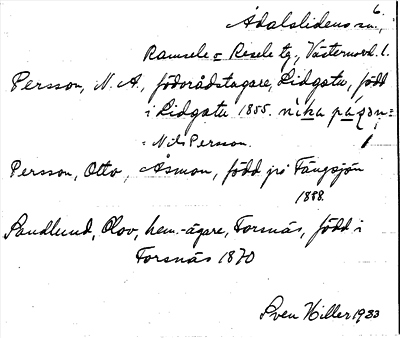 6.
Ådalslidens sn.,
Ramsele o Resele tg., Västernorrl. l.
Persson, N. A., födorådstagare, Lidgatu, född
i Lidgatu 1855.
= Nils Persson.
Persson, Otto, Åsmon, född på Fångsjön
1888.
Sandlund, Olov, hem.-ägare, Forsnäs, född i
Forsnäs 1870
Sven Hiller 1933